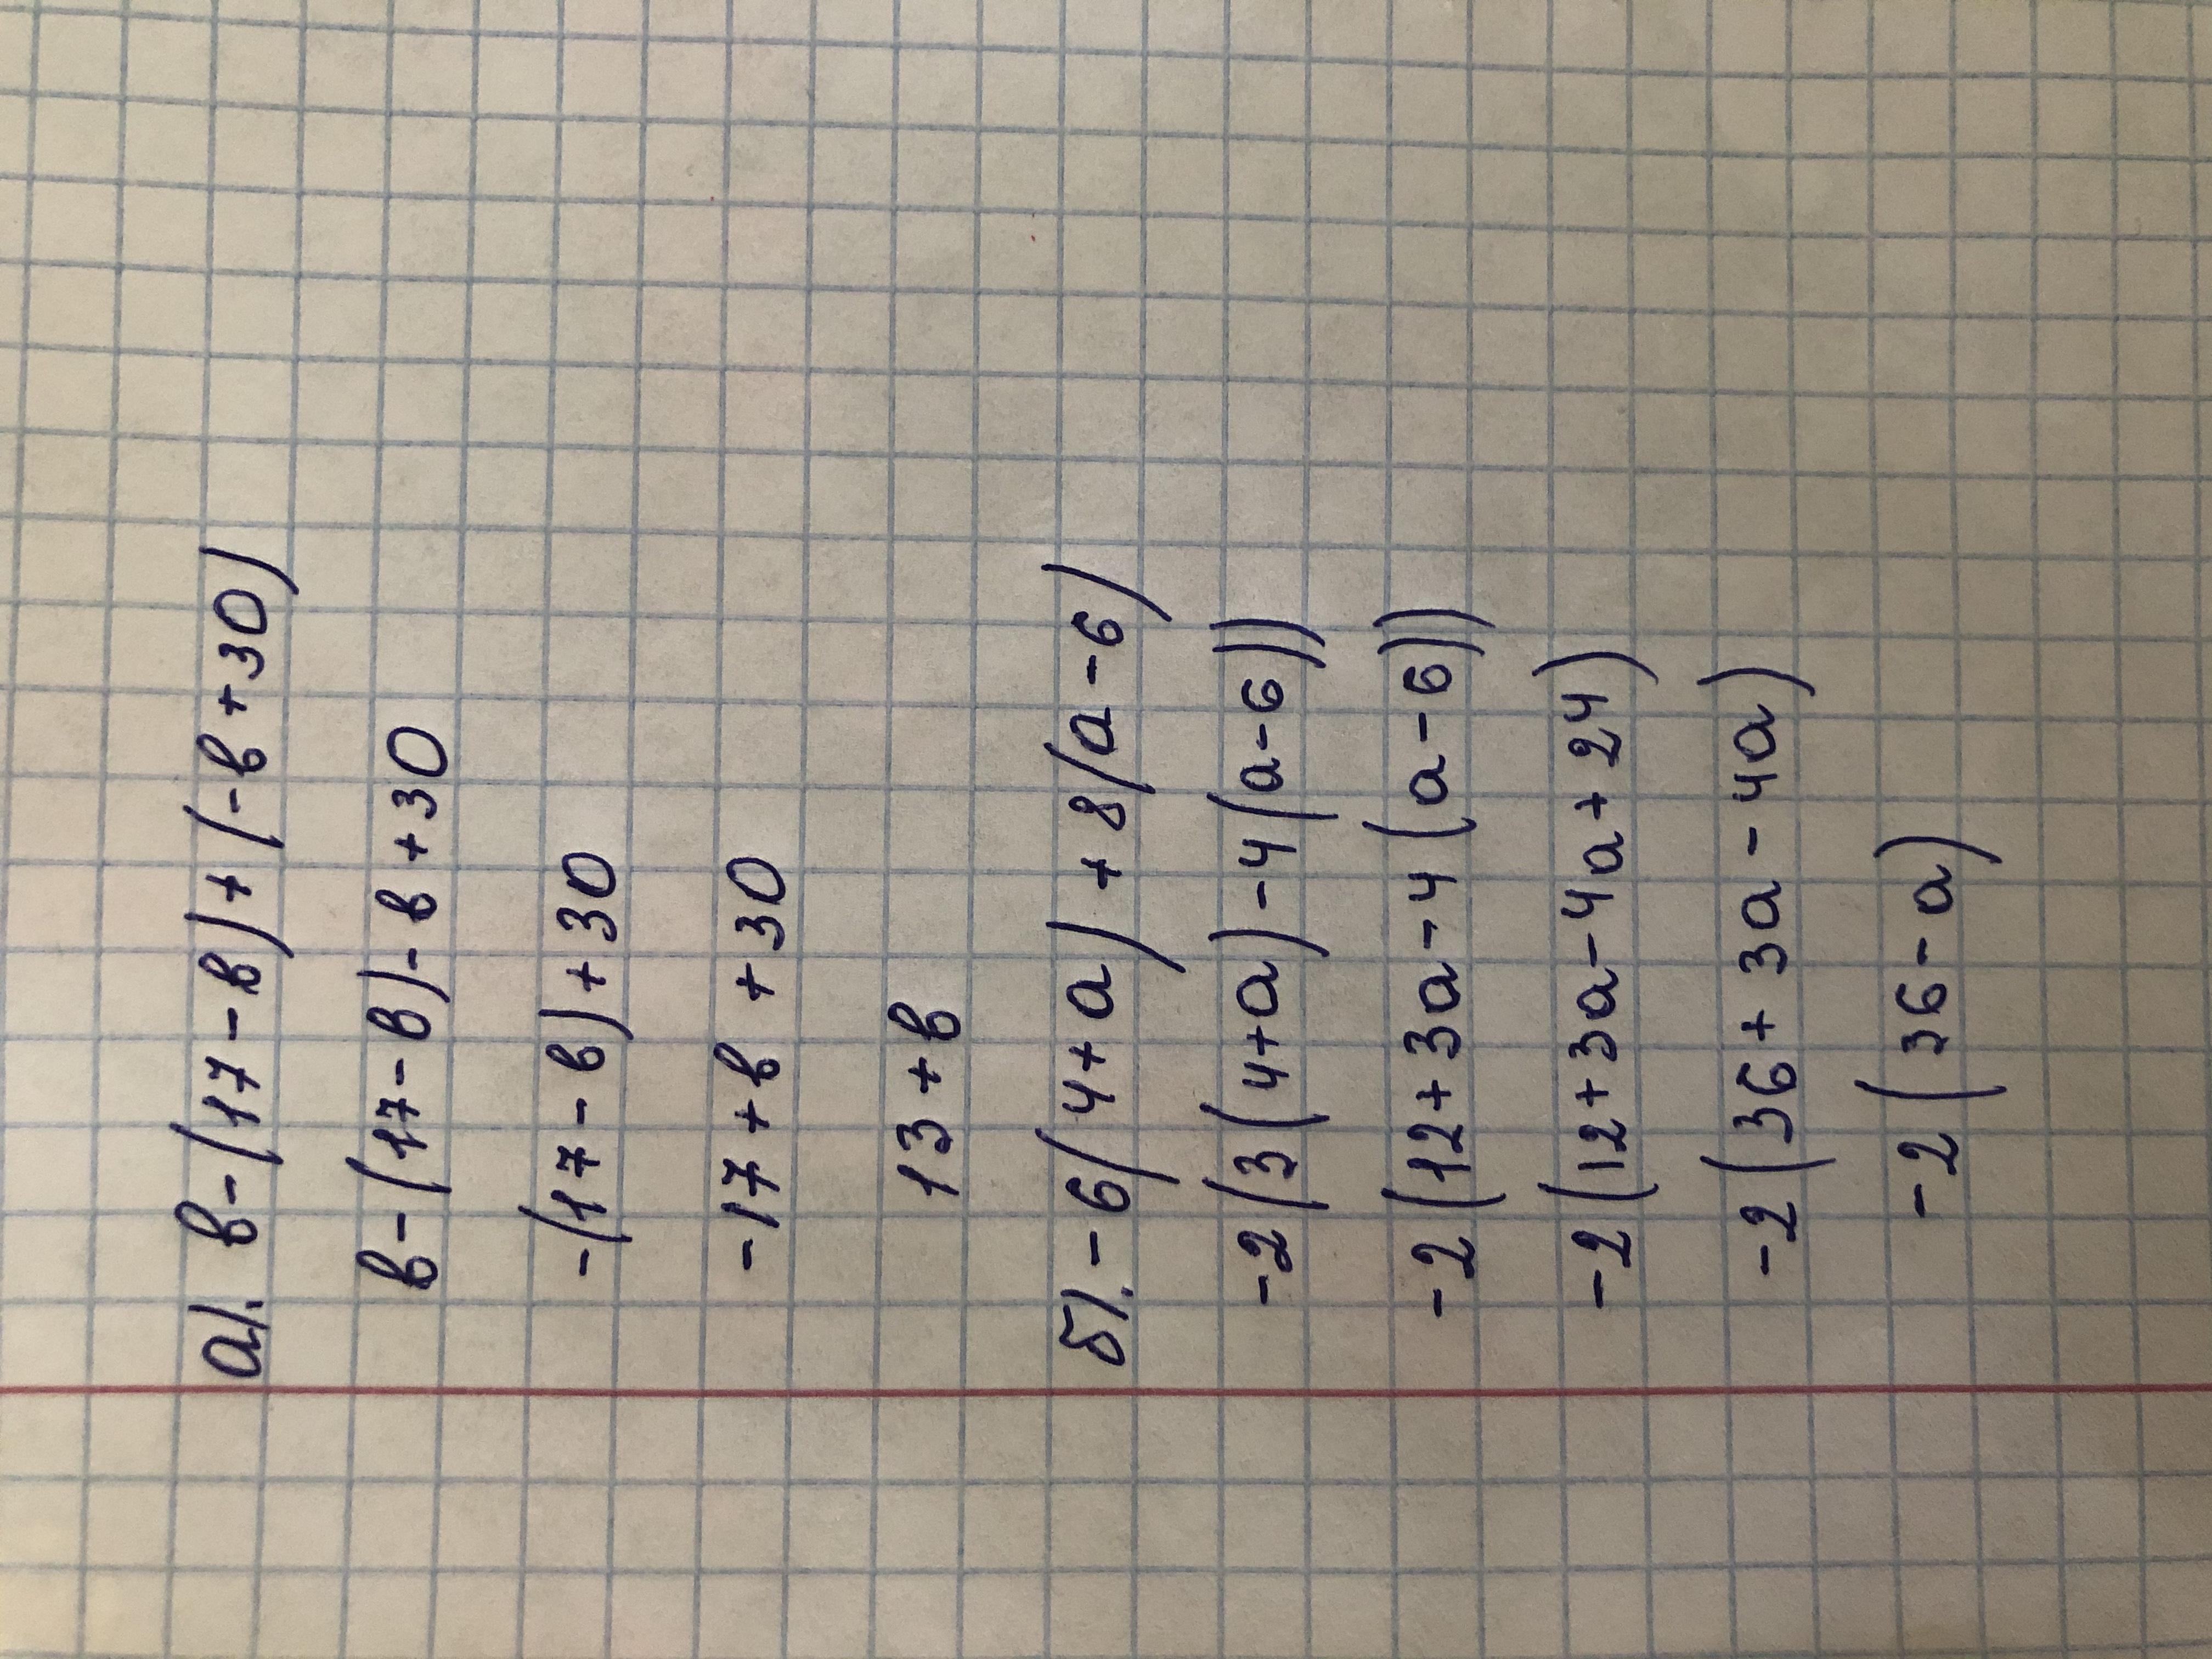 а). в-(17-в)+(-в+30)
в-(17-в)-в+30
-(17-в)+30
-17+в+30
13+в
б). -6(4+а)+8(а-6)
-2(3(4+а)-4(а-6))
-2(12+3а-4(а-6))
-2(12+3а-4а+24)
-2(36+3а-4а)
-2(36-а)